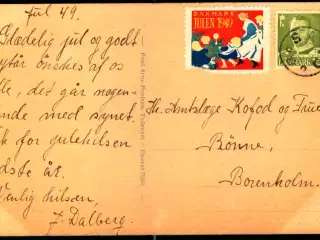 Jul 49.
Glædelig jul og godt
nytår ønskes af os
alle, det går nogen-
lunde med synet.
Tak for julehilsen
sidste år.
Venlig hilsen,
J. Dalberg.
DANMARK
JULEN 1949
Hr. Amtslæge Kofod og Frue
Rønne,
Bornholm.